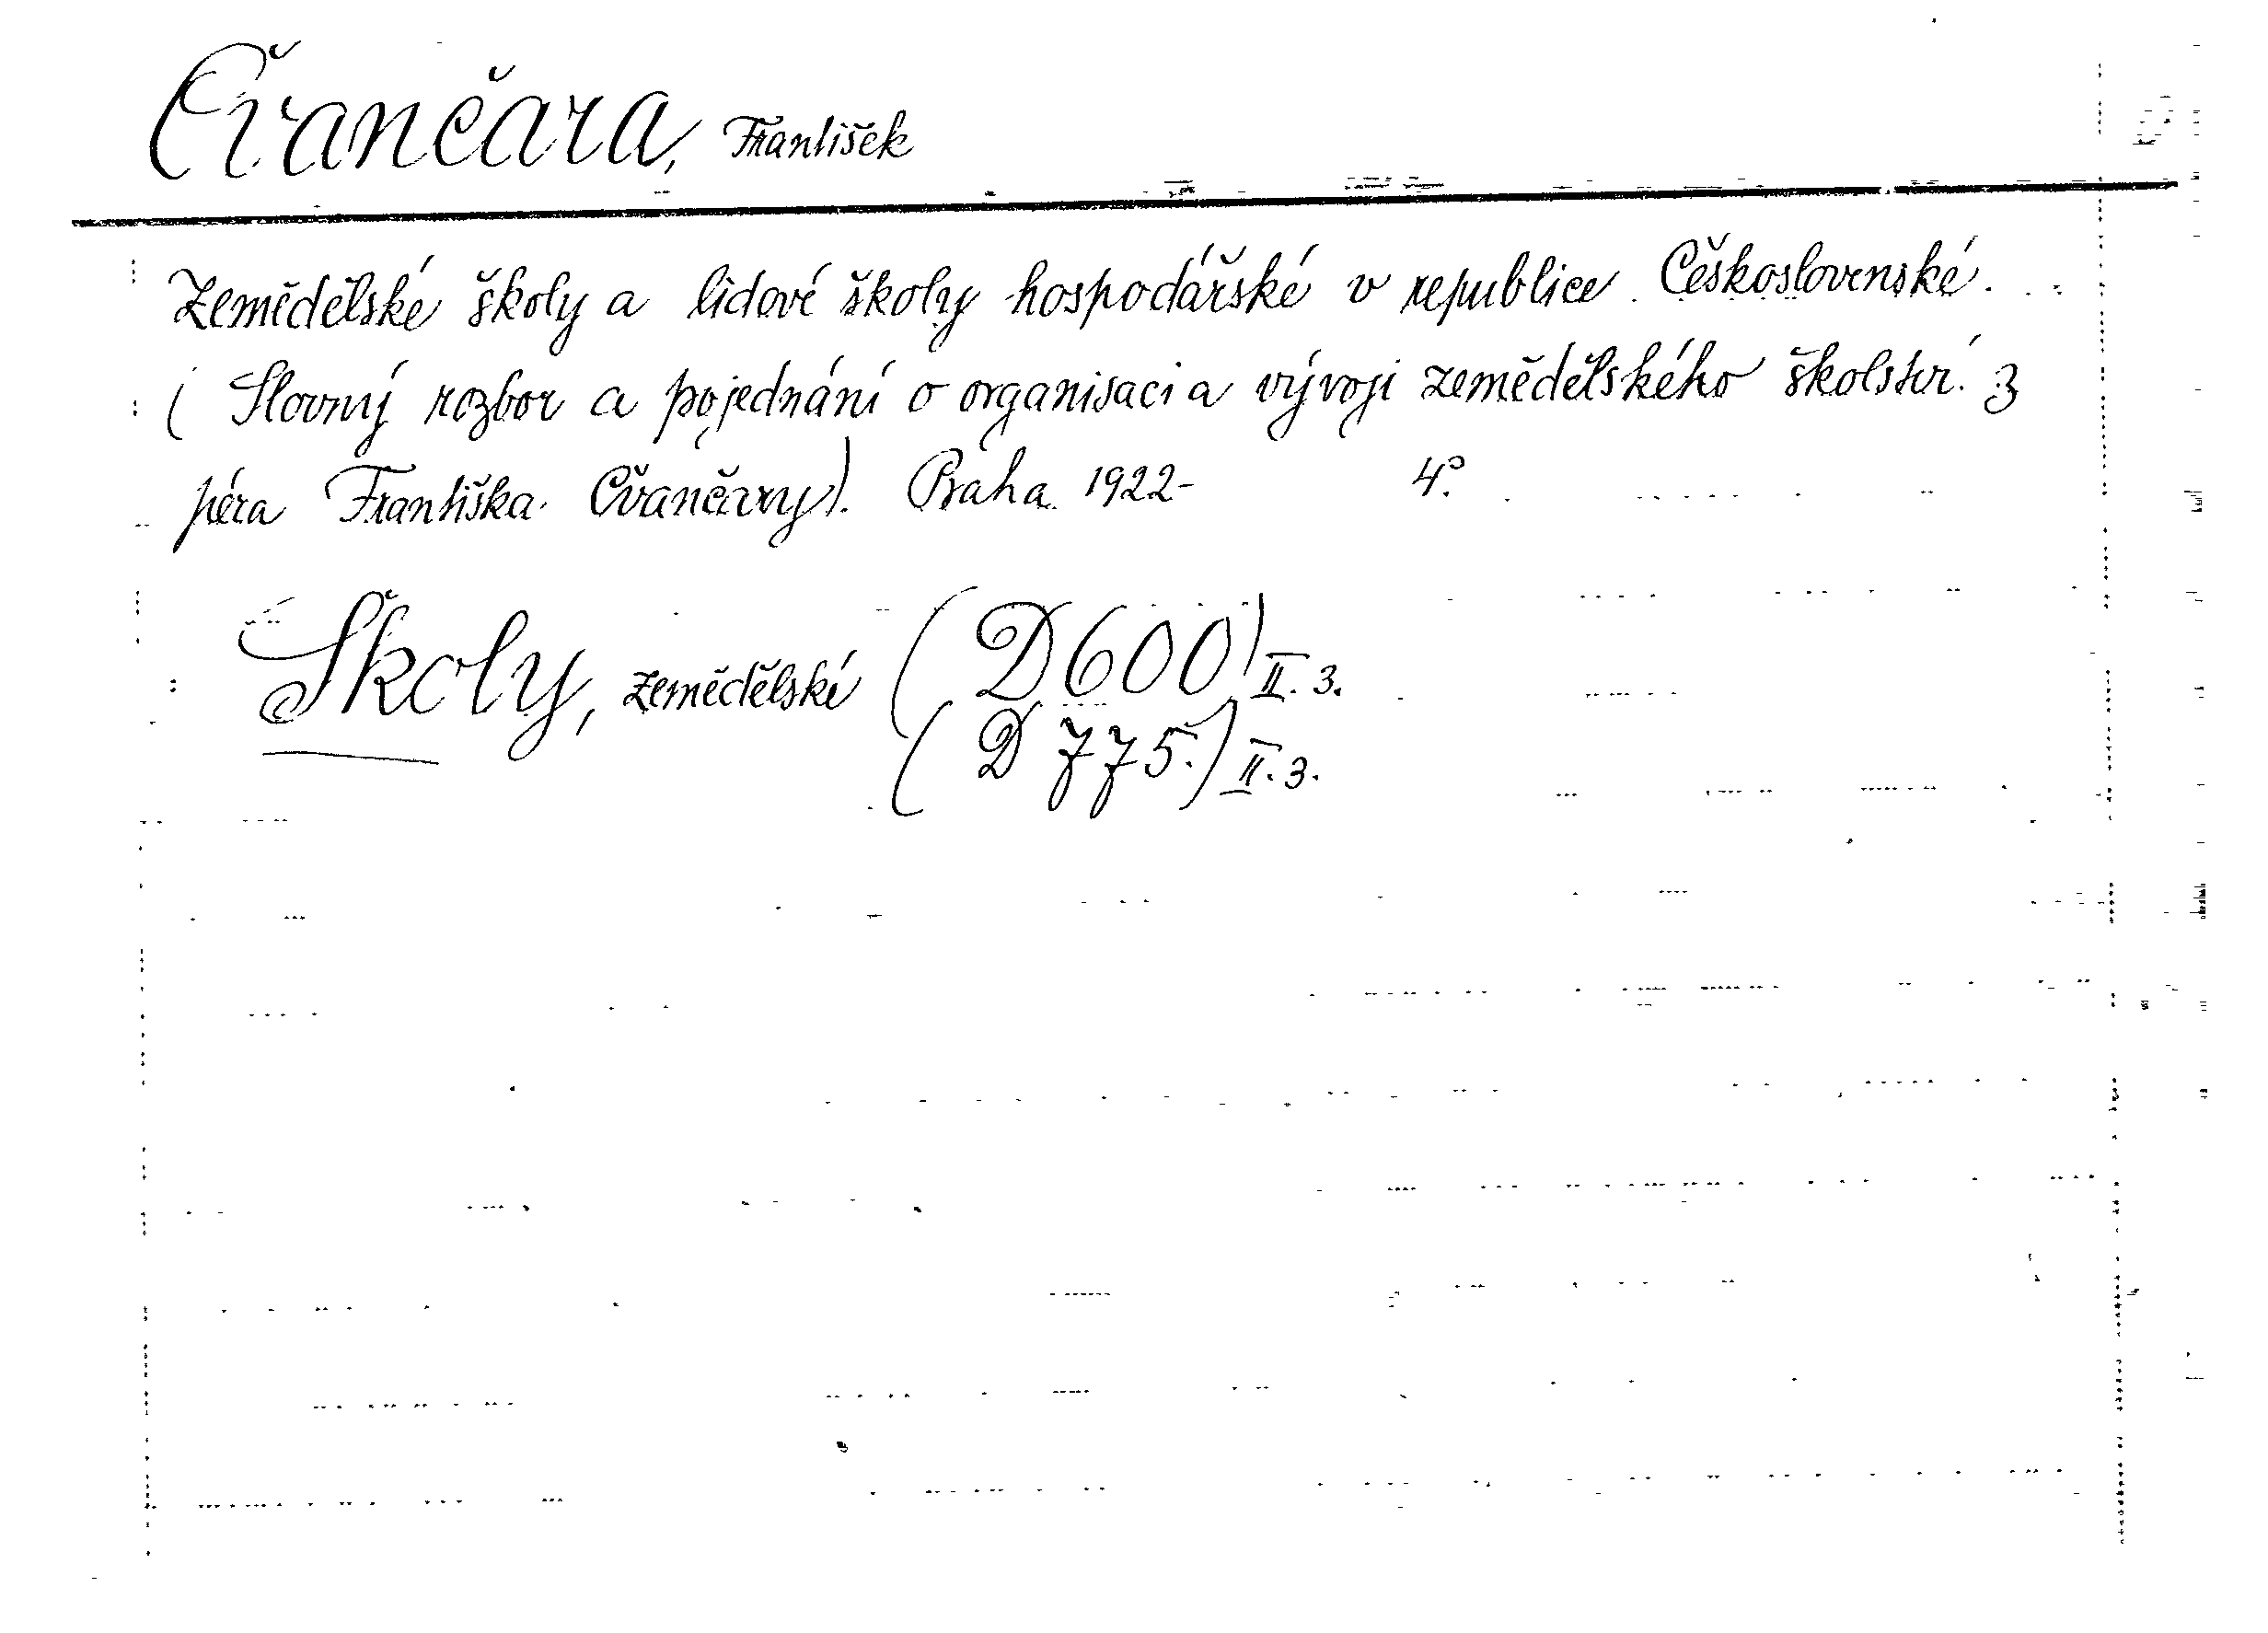 Čvančara, František
Zemědělské školy a lidové školy hospodářské v republice Československé.
( Slovný rozbor a pojednání o organisaci a vývoji zemědělského školství z
péra Františka Čvančary). Praha 1922- 4°.
Školy, zemědělské (D600) II. 3.
(D 775.) II. 3.